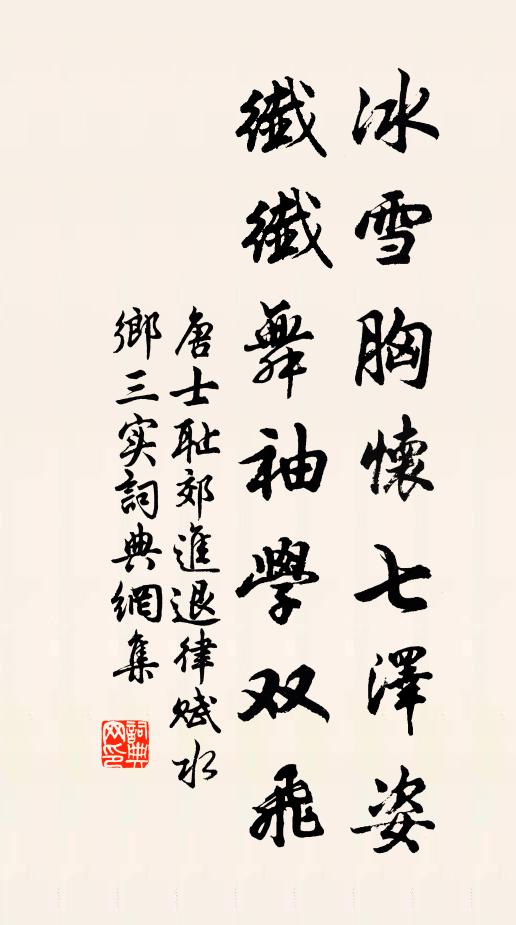 冰雪胸懷七澤姿
纖纖舞袖學双飛
唐士耻郊進退律賦水
鄉三实詞典網集
詞典网印